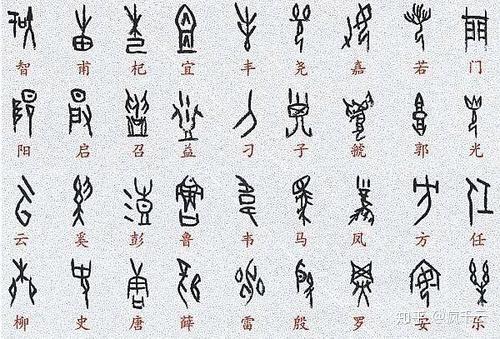 智 甫 杞 宜 丰 尧 嘉 若 门
阳 启 召 益 刁 子 虢 郭 光
云 奚 彭 鲁 韦 马 凤 方 任
柳 史 唐 薛 雷 殷 罗 安 乐
知乎 @疯千云